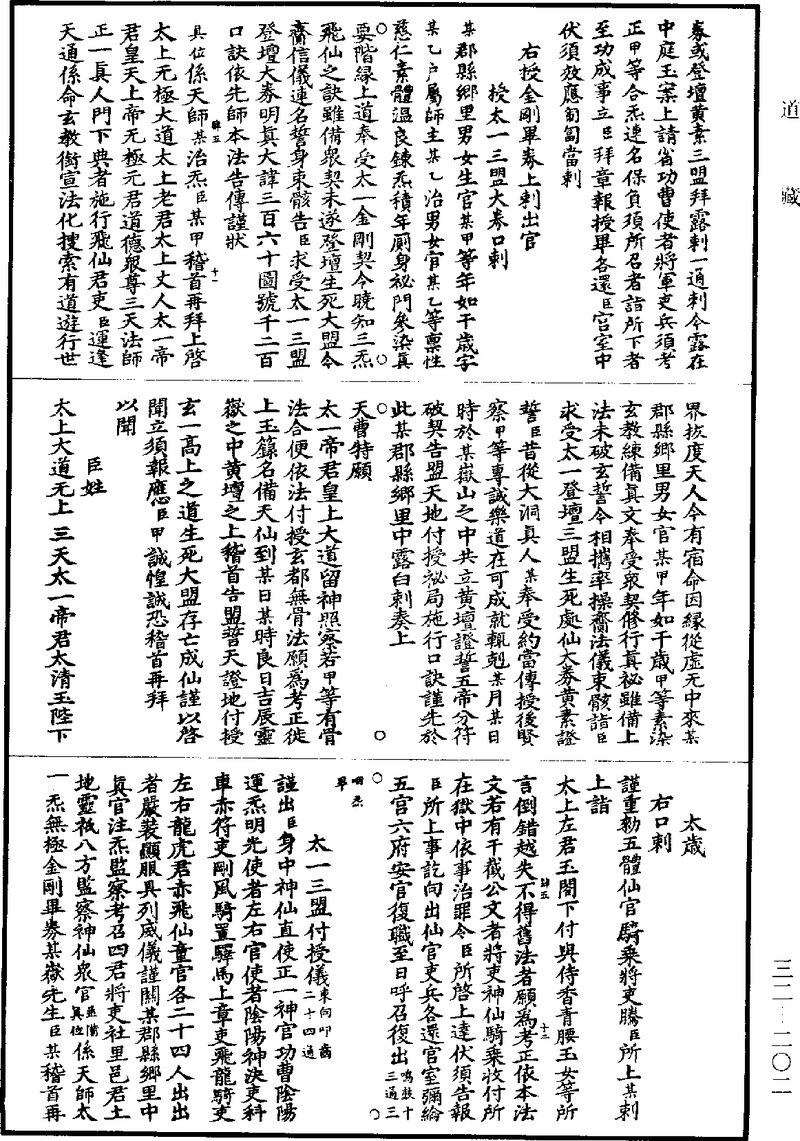 道藏
三二—二〇二
券或登壇黃素三盟拜露剌一通剌今露在
中庭玉案上請省功曹使者將軍吏兵須考
正甲等合炁連名保負須所召者詣所下者
至功成事立臣拜章報授畢各還臣宮室中
伏須效應匍匐當剌
右授金剛畢券上剌出官
授太一三盟大券口剌
某郡縣鄉里男女生官某甲等年如干歲字
某乙户屬師主某乙治男女官某乙等稟性
慈仁素體溫良鍊炁積年厠身祕門參染真
要階緣上道奉受太一金剛契令曉知三炁
飛仙之訣雖備衆契未遂登壇生死大盟今
齎信儀連名誓身束骸告臣求受太一三盟
登壇大券明真大諱三百六十圖號千二百
口訣依先師本法告傳謹狀
具位係天師某治炁臣某甲稽首再拜上啓
太上无極大道太上老君太上丈人太一帝
君皇天上帝无極元君道德衆尊三天法師
正一真人門下典者施行飛仙君吏臣運逢
天通係命玄教銜宣法化搜索有道遊行世
肆五
十一
界拔度天人今有宿命因緣從虛无中來某
郡縣鄉里男女官某甲年如干歲甲等素染
玄教練備真文奉受衆契修行真祕雖備上
法未破玄誓今相攜率操齎法儀束骸詣臣
求受太一登壇三盟生死處仙大券黃素證
誓臣昔從大洞真人某奉受約當傳授後賢
察甲等專誠樂道在可成就輒剋某月某日
時於某嶽山之中共立黃壇證誓五帝分符
破契告盟天地付授祕局施行口訣謹先於
此某郡縣鄉里中露白剌奏上
天曹特願
太一帝君皇上大道留神照察若甲等有骨
法合便依法付授玄都無骨法願爲考正徙
上玉籙名備天仙到某日某時良日吉辰靈
嶽之中黃壇之上稽首告盟誓天證地付授
玄一高上之道生死大盟存亡成仙謹以啓
聞立須報應臣甲誠惶誠恐稽首再拜
以聞
臣姓
太上大道无上三天太一帝君太清玉陛下
太歲
右口剌
謹重勑五體仙官騎乘將吏騰臣所上某剌
上詣
太上左君玉閤下付與侍香青腰玉女等所
言倒錯越失不得舊法者願爲考正依本法
文若有干截公文者將吏神仙騎乘收付所
在獄中依事治罪令臣所啓上達伏須告報
臣所上事訖向出仙官吏兵各還宮室彌綸
五宮六府安官復職至日呼召復出鳴鼓十二通三
嚥炁畢
肆五
十二
太一三盟付授儀東向叩齒二十四通
謹出臣身中神仙直使正一神官功曹陰陽
運炁明光使者左右官使者陰陽神決吏科
車赤符吏剛風騎置驛馬上章吏飛龍騎吏
左右龍虎君赤飛仙童官各二十四人出出
者嚴裝顯服具列威儀謹關某郡縣鄉里中
真官注炁監察考召四君將吏社里邑君土
地靈祇八方監察神仙衆官並階具位係天師太
一炁無極金剛畢券某嶽先生臣某稽首再